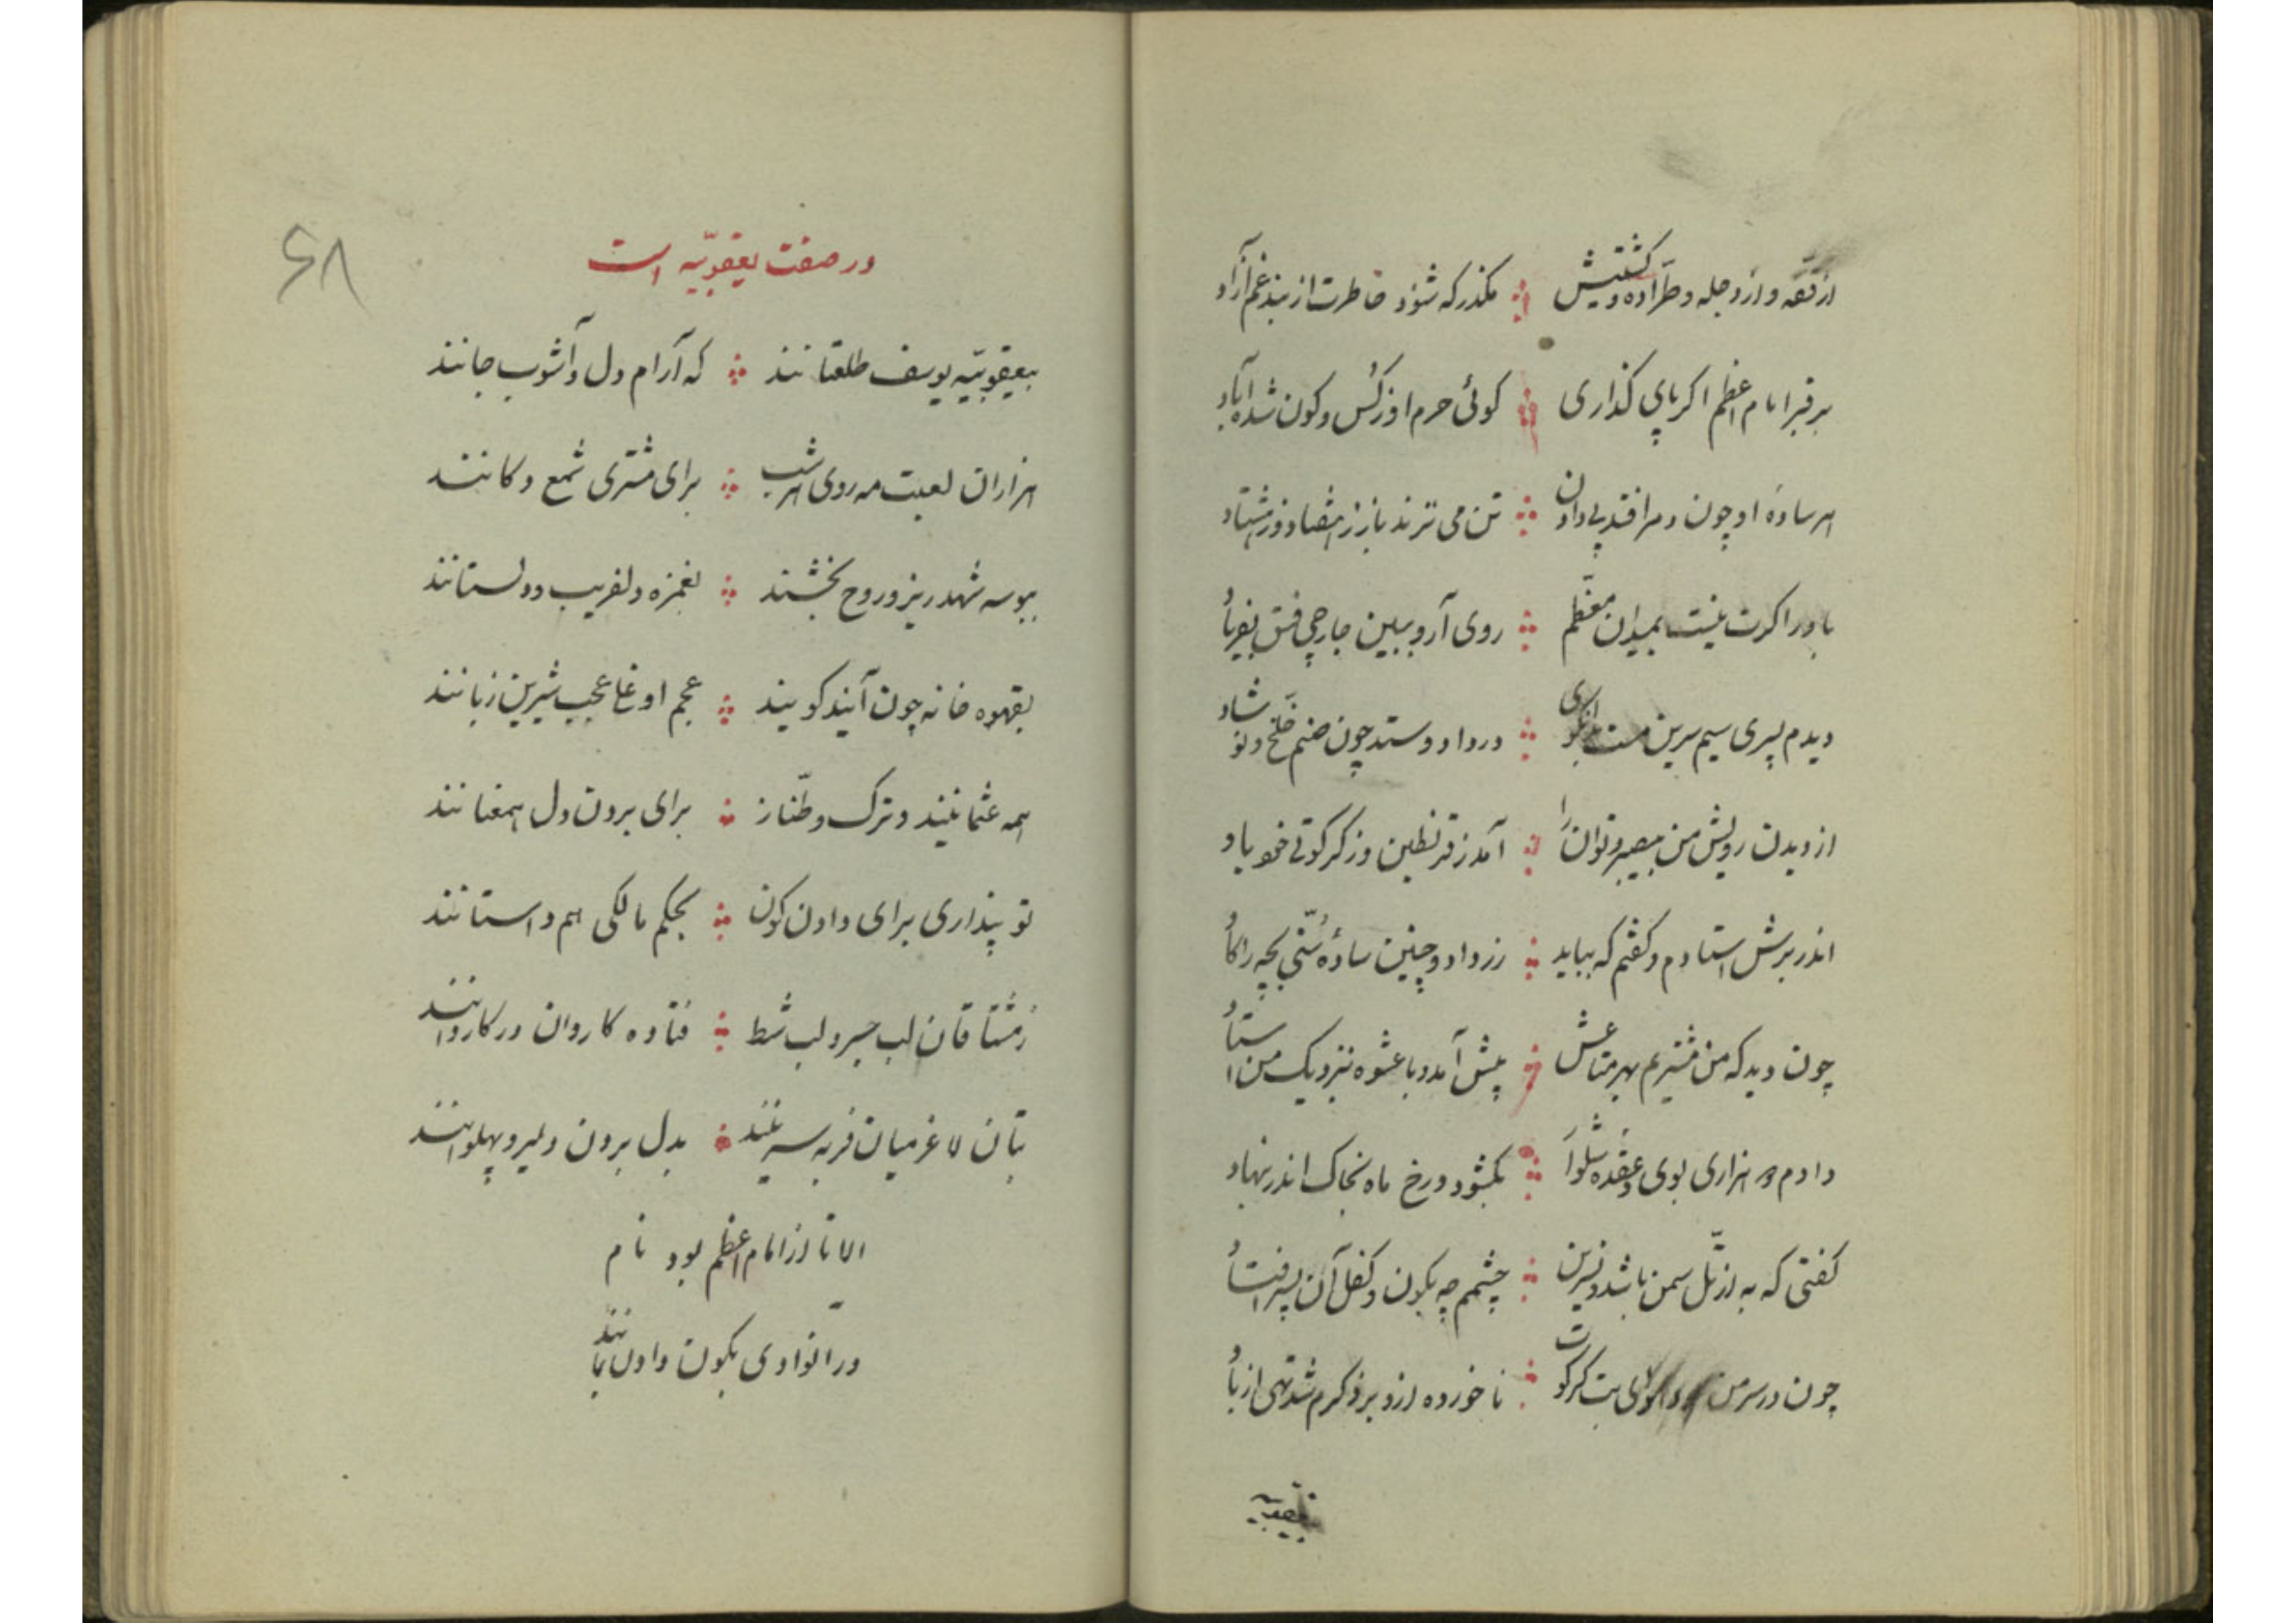 از قفه و از دجله و طراده و کشتیش ⁘ مگذر که شود خاطرت از بند غم آزاد
بر قبر امام اعظم اگر پای گذاری ⁘ گوئی حرم او ز کس و کون شده آباد
هر سادهٔ او چون دمر افتد پی دادن ⁘ تن می نزند باز ز هفتاد و ز هشتاد
باور اگرت نیست بمیدان معظم ⁘ روی آر و ببین جارچی فسق بفریاد
دیدم پسری سیم سرین مست ⁘ در داد و ستد چون صنم خلخ و نوشاد
از دیدن رویش من بیصبر و توان را ⁘ آمد ز قرنطین و ز کرکوتی خود یاد
اندر برش استادم و گفتم که بباید ⁘ زر داد و چنین سادهٔ سنی بچه را گاد
چون دید که من مشتریم بهر متاعش ⁘ پیش آمد و با عشوه نزدیک من استاد
دادم دو هزاری بوی و عقده شلوار ⁘ بگشود و رخ ماه بخاک اندر بنهاد
گفتی که به از تل سمن باشد و نسرین ⁘ چشمم چه بکون و کفل آن پسر افتاد
چون در سر من هوای بت کرکوت ⁘ ناخورده ازو بر ذکرم شد تهی از باد
یعقوبیه
۶۸
در صفت یعقوبیّه است
بیعقوبیّه یوسف طلعتانند ⁘ که آرام دل و آشوب جانند
هزاران لعبت مه روی هر شب ⁘ برای مشتری شمع دکانند
ببوسه شهد ریز و روح بخشند ⁘ بغمزه دلفریب و دلستانند
بقهوه خانه چون آیند گویند ⁘ عجم اوغلا عجب شیرین زبانند
همه عثمانیند و ترک و طنّاز ⁘ برای بردن دل همعنانند
تو پنداری برای دادن کون ⁘ بحکم مالکی هم داستانند
ز مشتاقان لب جسر و لب شط ⁘ فتاده کاروان در کاروانند
بتان لاغر میان فربه سرینند ⁘ بدل بردن دلیر و پهلوانند
الا تا از امام اعظم بود نام
در انوادی بکون دادن بمانند